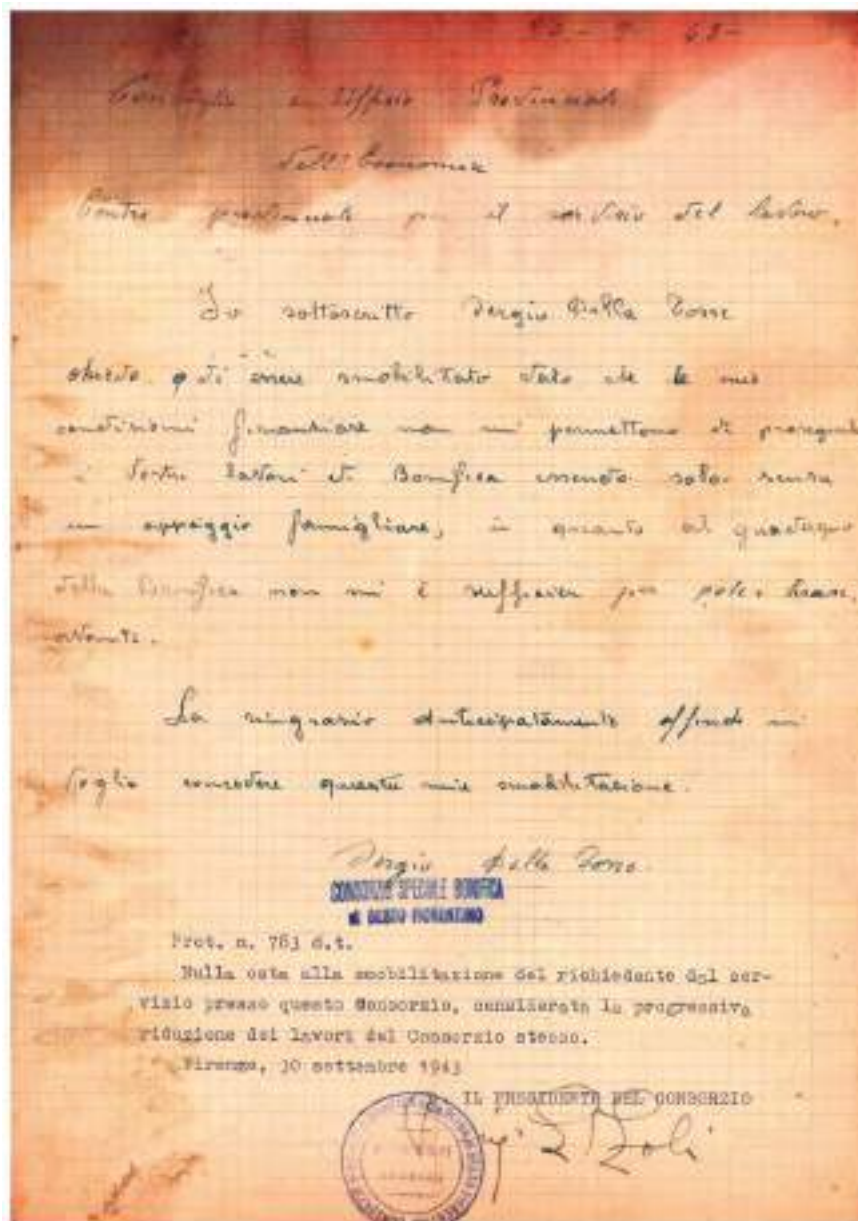 Consiglio e Ufficio Provinciale
dell'Economia
Centro provinciale per il servizio del lavoro.
Io sottoscritto Sergio Della Torre
chiedo di essere smobilitato dato che le mie
condizioni finanziare non mi permettono di
lavori di Bonifica essendo solo senza
un appoggio famigliare, in quanto al guadagno
della Bonifica non mi è per poter
avanti.
La ringrazio anticipatamente mi
voglia concedere questa mia smobilitazione.
Sergio Della Torre
CONSORZIO SPECIALE BONIFICA
di SESTO FIORENTINO
Prot. n. 763 d.t.
Nulla osta alla smobilitazione del richiedente dal ser-
vizio presso questo Consorzio, considerata la progressiva
riduzione dei lavori del Consorzio stesso.
Firenze, 30 settembre 1943
IL PRESIDENTE DEL CONSORZIO